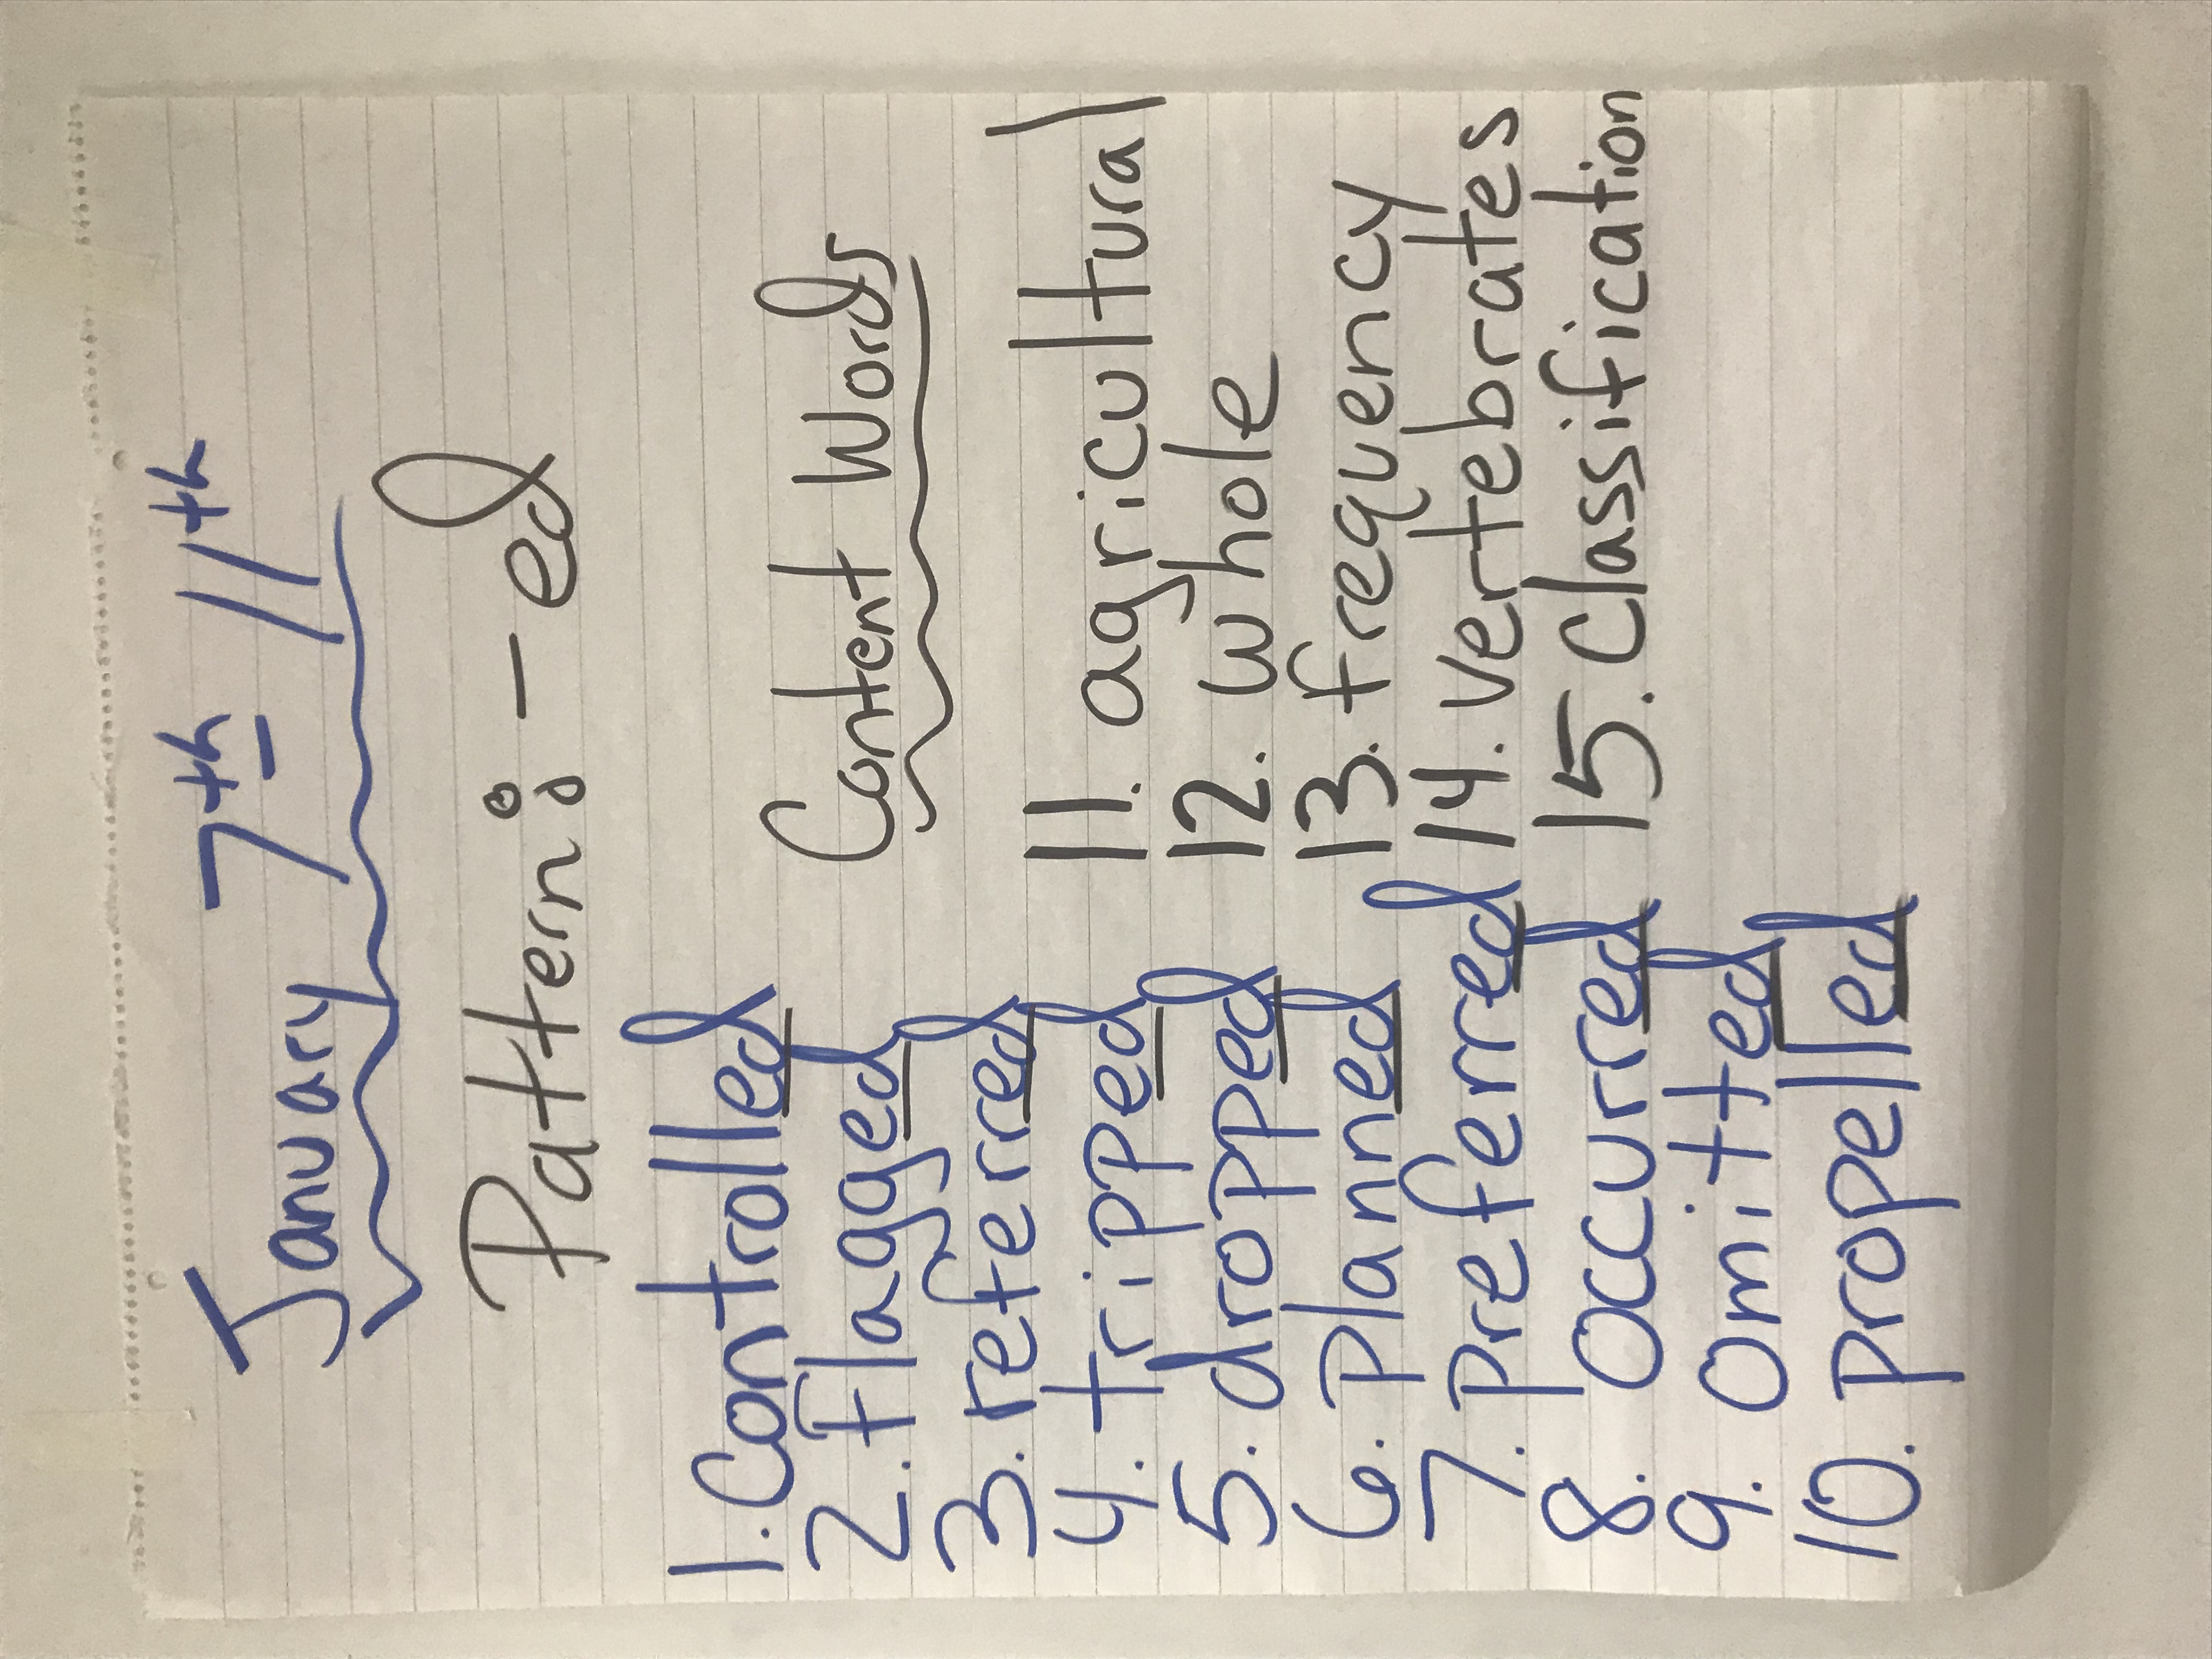 January 7th - 11th
Pattern: - ed
1. Controlled
2. Flagged
3. referred
4. tripped
5. dropped
6. Planned
7. Preferred
8. Occurred
9. Omitted
10. propelled
Content Words
11. agricultural
12. whole
13. frequency
14. vertebrates
15. Classification